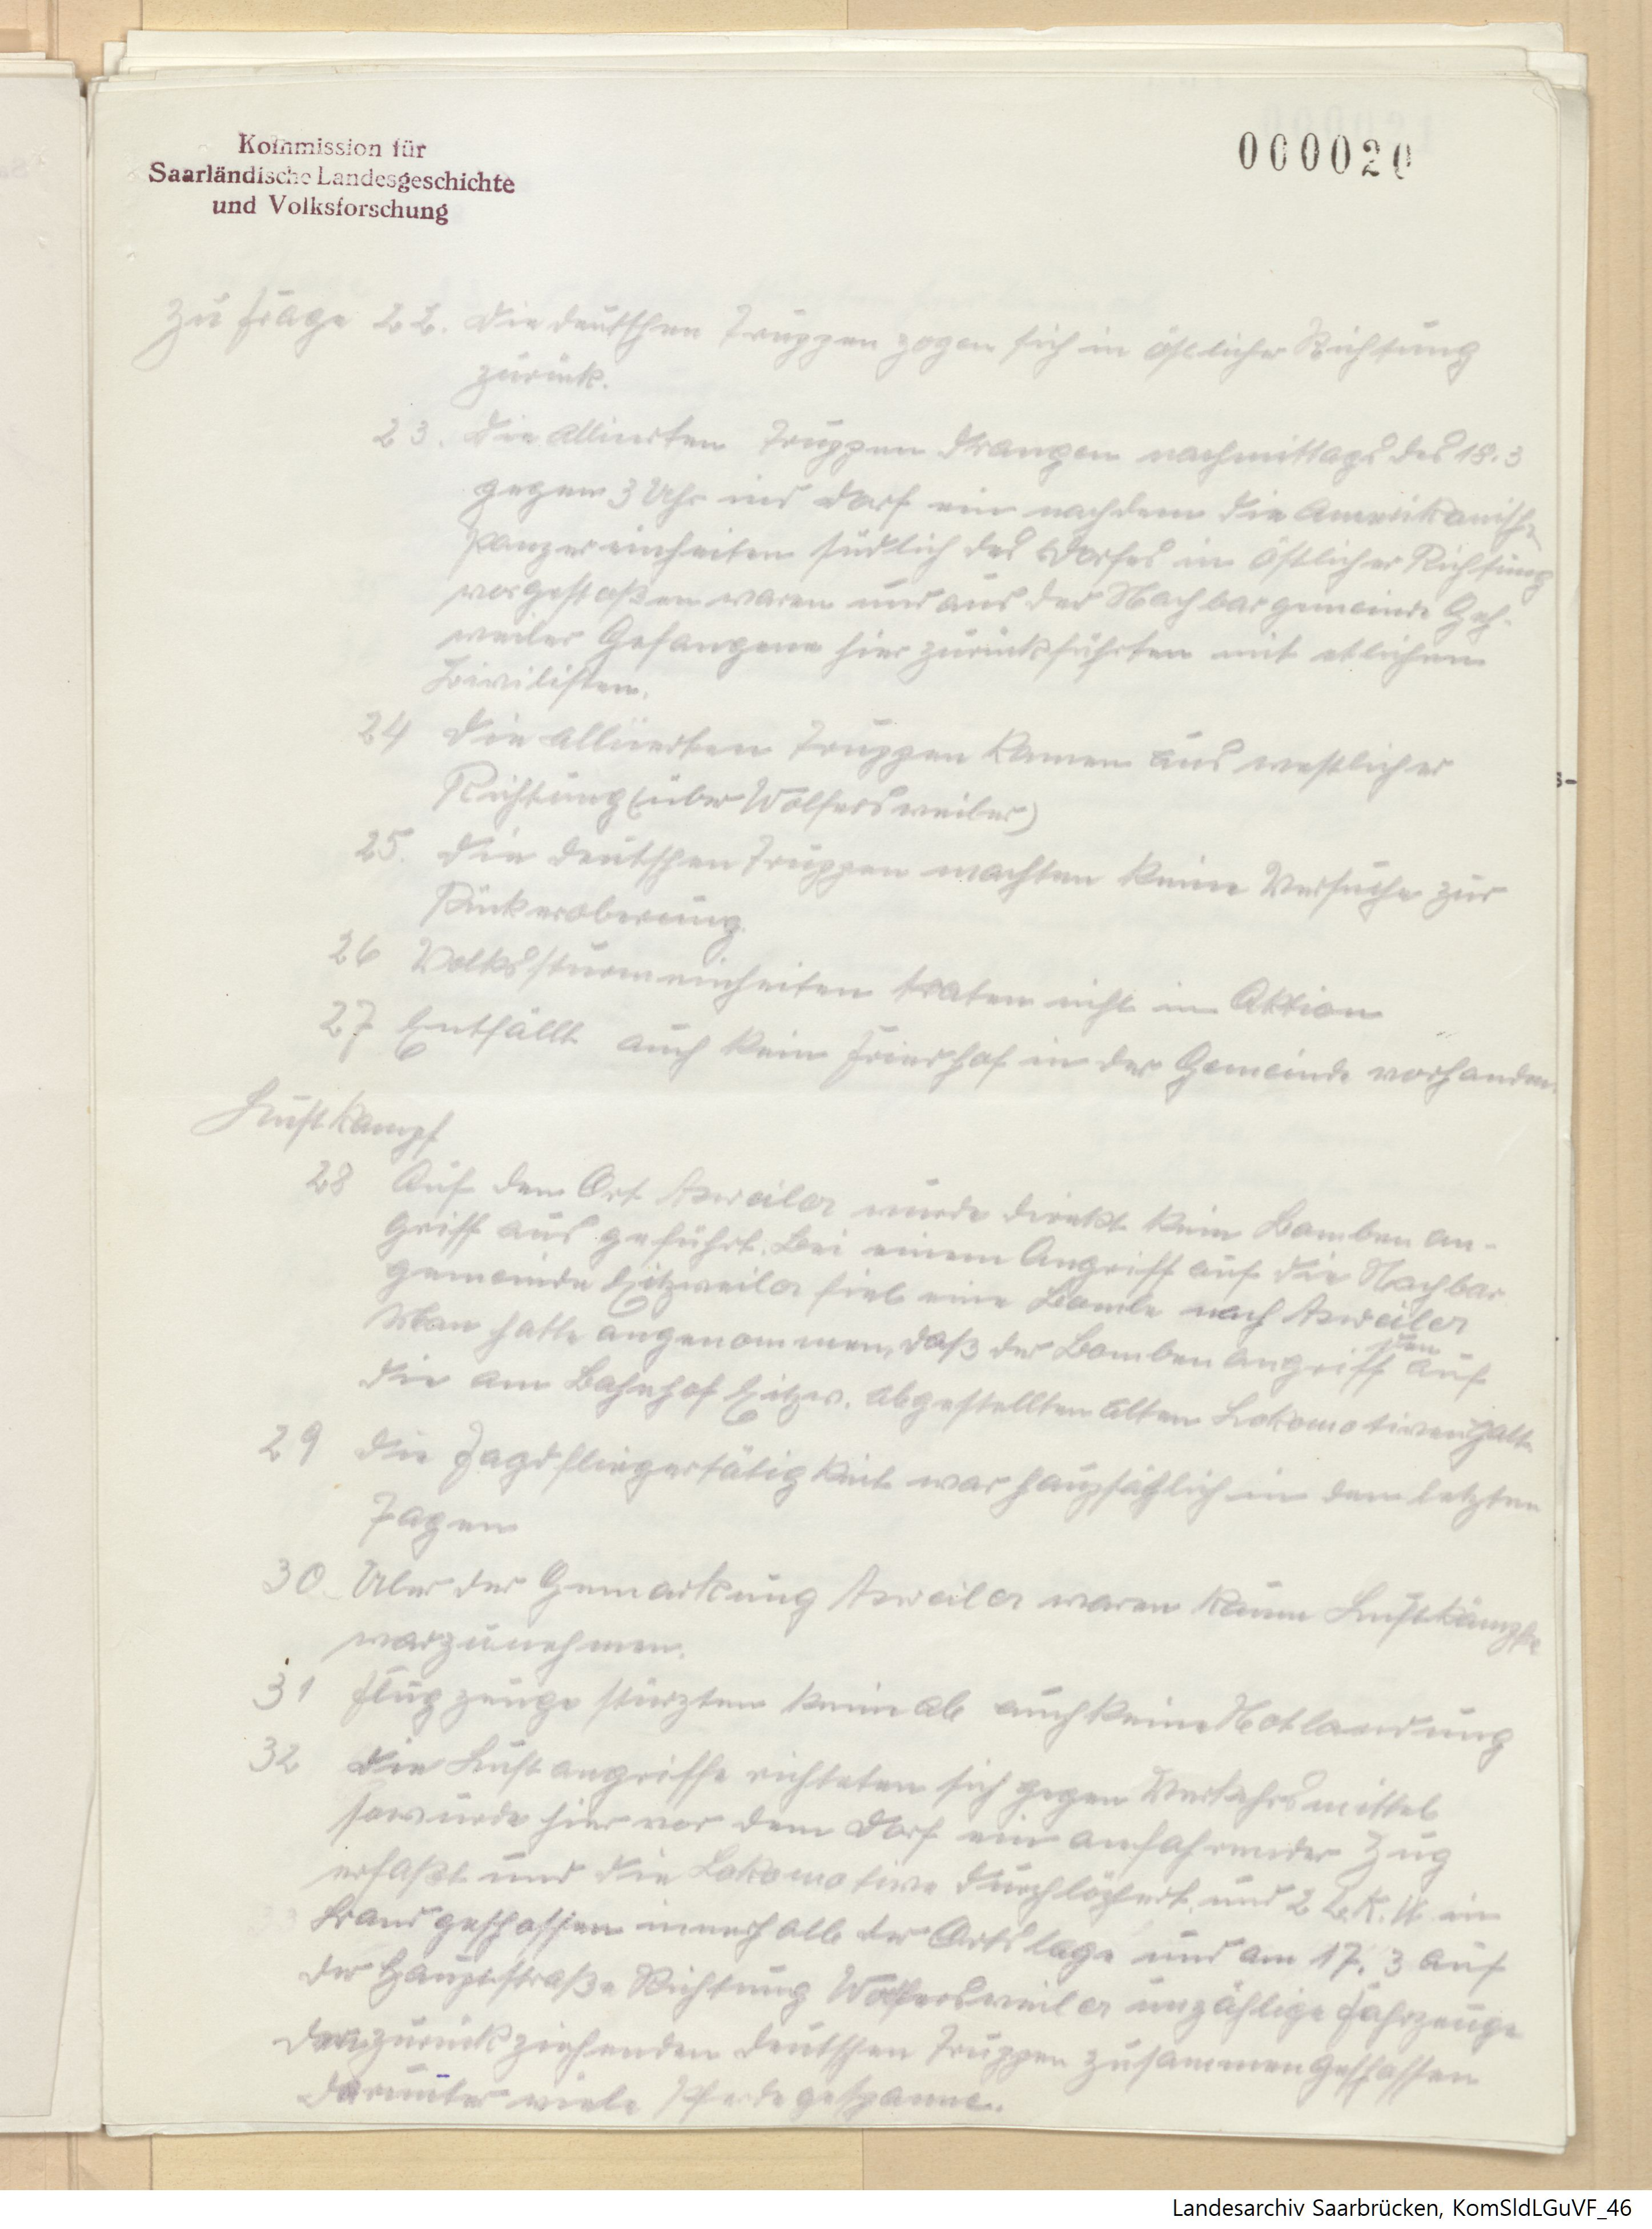 Kommission für
Saarländische Landesgeschichte
und Volksforschung
000020
Zu Frage 22. Die deutschen Truppen zogen sich in östlicher Richtung
zurück.
23. Die Alliierten Truppen drangen nachmittags des 18.3
gegen 3 Uhr ins Dorf ein nachdem die Amerikanisch
Panzereinheiten südlich des Dorfes in östlicher Richtung
vorgestoßen waren und aus der Nachbargemeinde Geh-
weiler Gefangene hier zurückführten mit etlichen
Zivilisten.
24 Die alliierten Truppen kamen aus westlicher
Richtung (über Wolfersweiler)
25. Die deutschen Truppen machten keine Versuche zur
Rückeroberung.
26 Volkssturmeinheiten traten nicht in Aktion
27 Entfällt auch kein Friedhof in der Gemeinde vorhanden.
Luftkampf
28 Auf den Ort Asweiler wurde direkt kein Bomben an-
griff aus geführt. Bei einem Angriff auf die Nachbar
gemeinde Eitzweiler fiel eine Bombe nach Asweiler
Man hatte angenommen, daß der Bomben angriff auf
die am Bahnhof Eitzw. abgestellten alten Lokomotiven galt.
29 Die Jagdfliegertätigkeit war haupsächlich in den letzten
Tagen
30 Über der Gemarkung Asweiler waren kaum Luftkämpfe
warzunehmen.
31 Flugzeuge stürzten keine ab auch keine Notlandung
32 Die Luftangriffe richteten sich gegen Verkehrsmittel
so wurde hier vor dem Dorf ein anfahrender Zug
erfaßt und die Lokomotive durchlöchert und 2 L.K.W in
Brand geschossen innerhalb der Ortslage und am 17.3 auf
der Hauptstraße Richtung Wolfersweiler unzählige Fahrzeuge
der zurückziehenden deutschen Truppen zusammengeschossen
darunter viele Pferdegespanne.
s-
Landesarchiv Saarbrücken, KomSldLGuVF_46